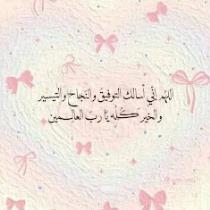 اللهم إنّي أسألك التوفيق والنجاح والتيسير
والخير كُلّه يا رب العالمين